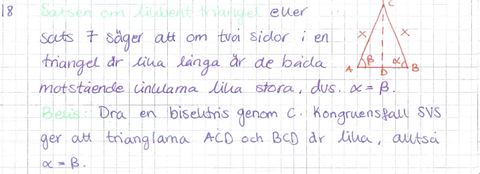 18 Satsen om likbent triangel eller
sats 7 säger att om två sidor i en
triangel är lika långa är de båda
motstående vinklarna lika stora, dvs. α = β.
Bevis: Dra en bisektris genom C. Kongruensfall SVS
ger att trianglarna ACD och BCD är lika, alltså
α = β.
C
x x
β α
A D B